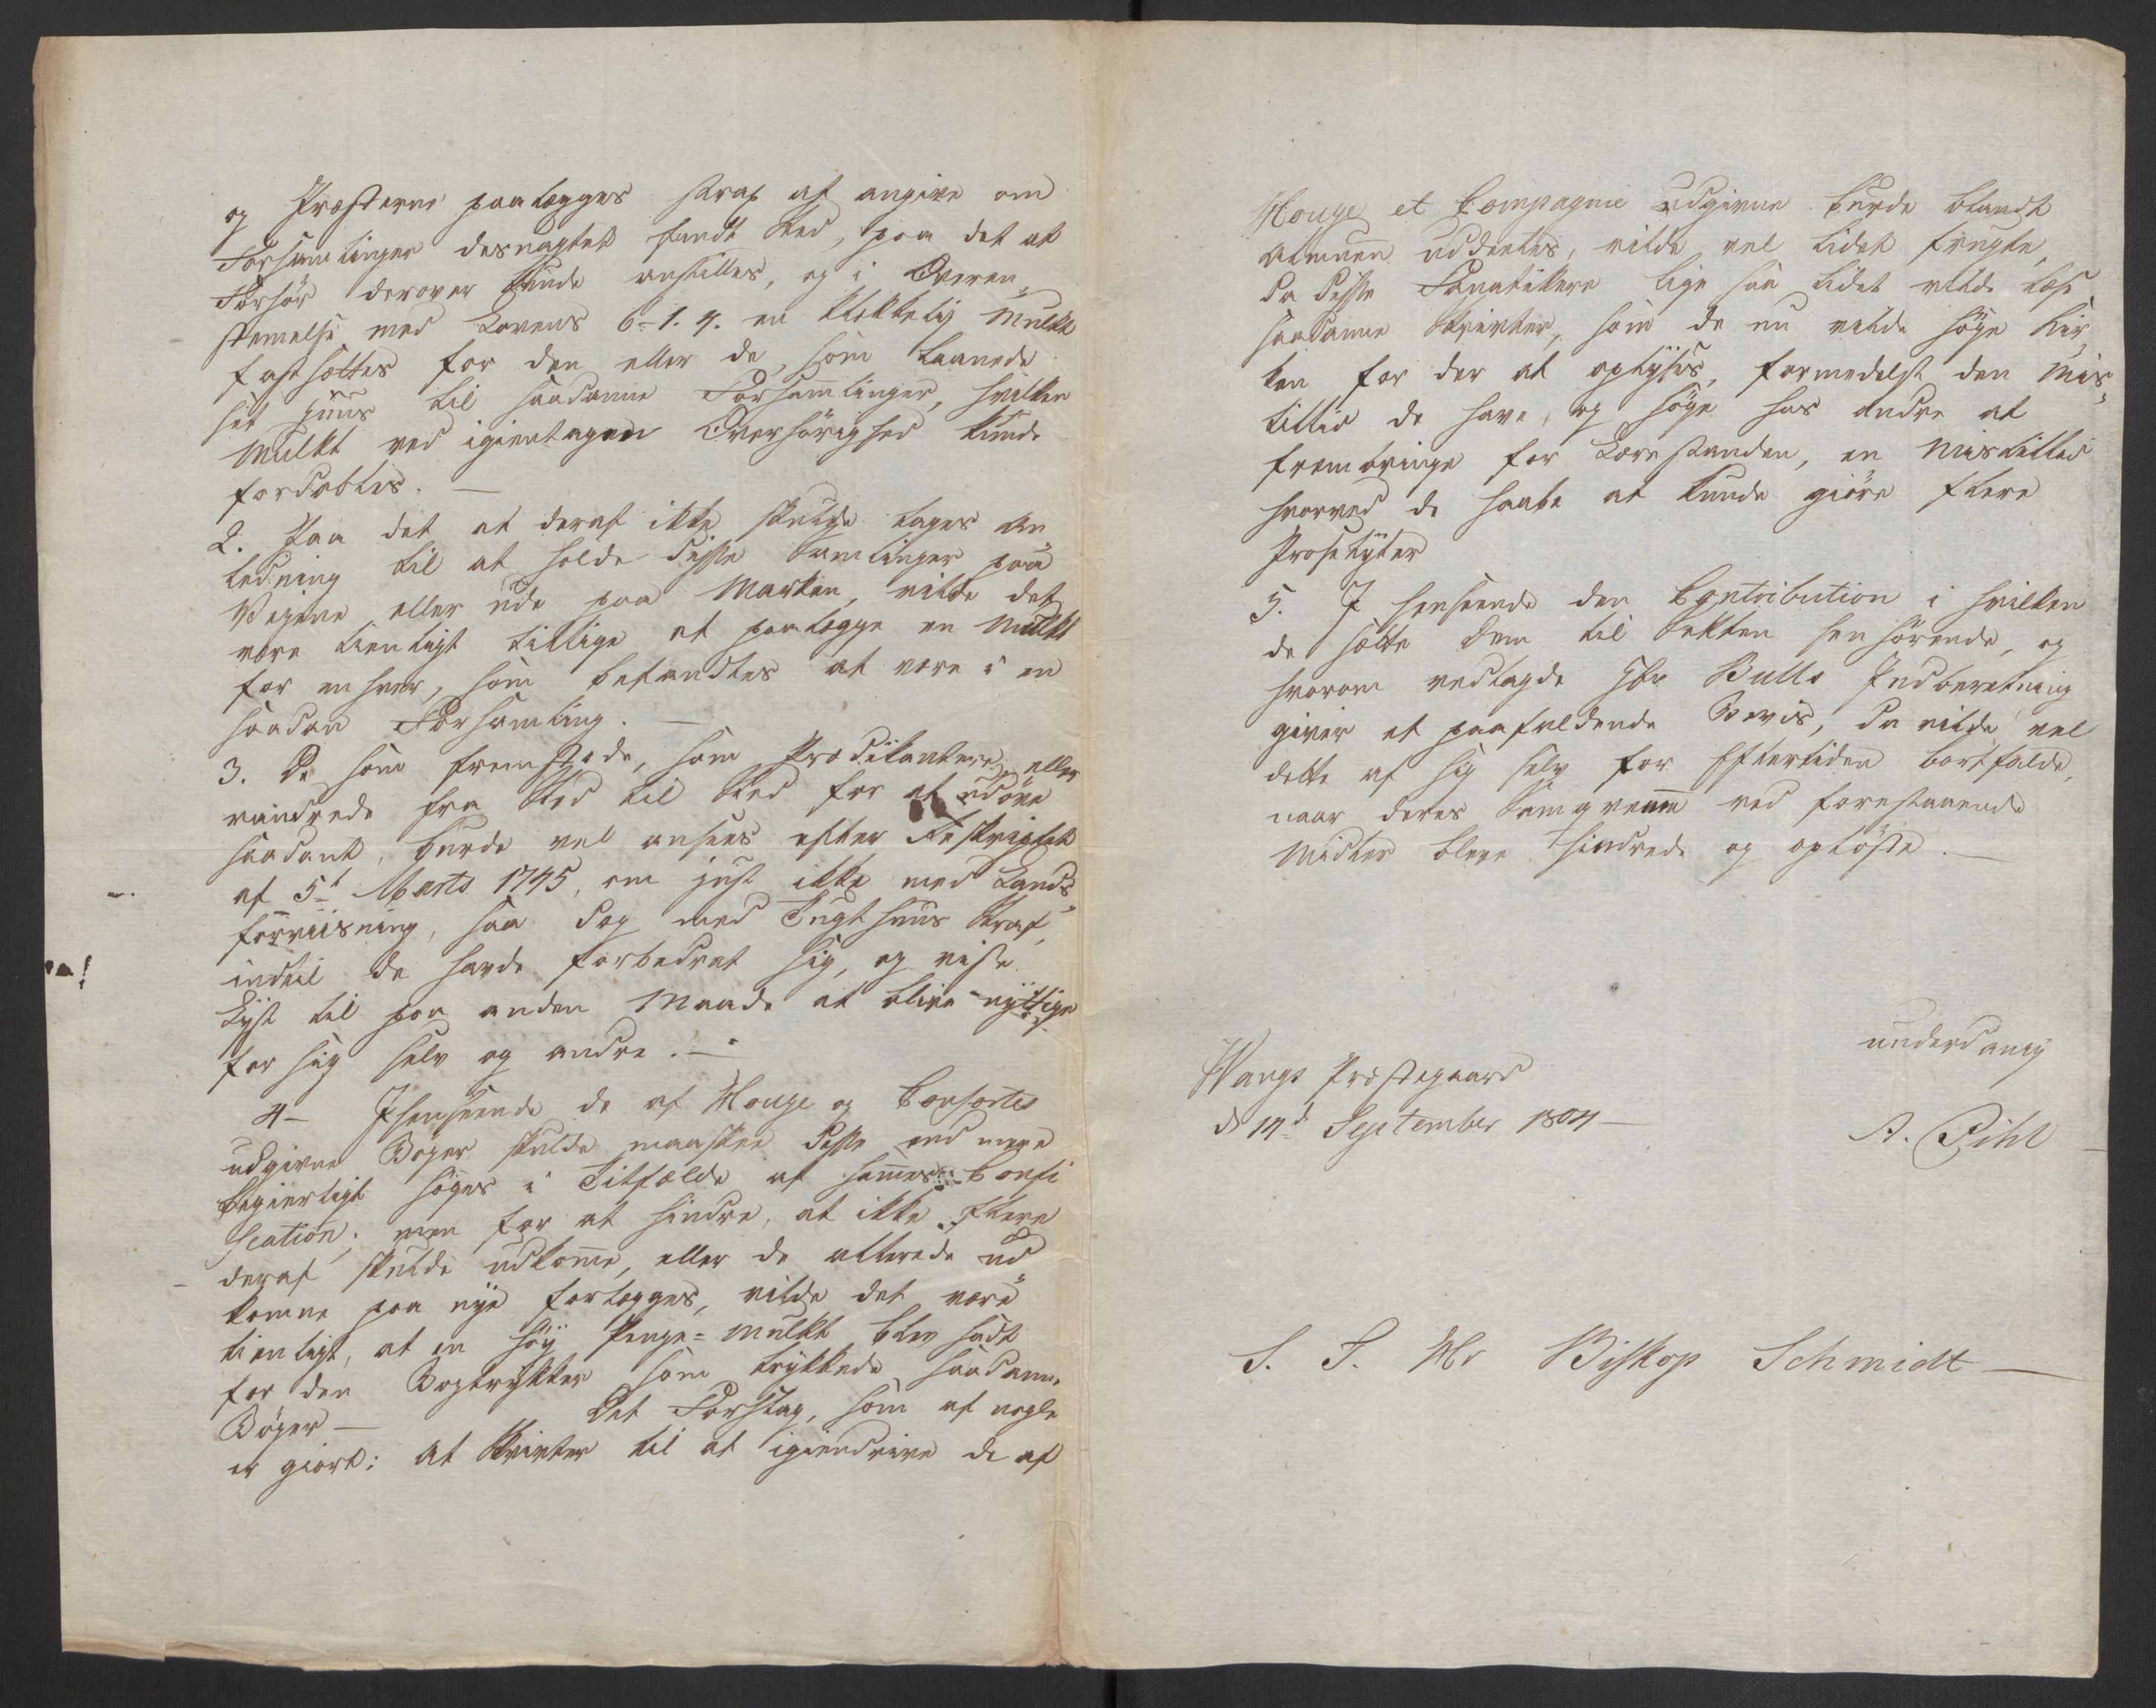 og Præsterne paalægges strax at angive om
Forsamlinger desuagtet fandt Sted, paa det at
Forhör derover kunde anstilles, og i Overen„
stemelse med Lovens 6-1.4. en klækkelig Mulkt
fastsættes for den eller de, som laanede
sit Huus til saadanne Forsamlinger, hvilken
Mulkt ved igientagen Overhörighed kunde
fordobles. —
2. Paa det at deraf ikke skulde tages An„
ledning til at holde disse Samlinger paa
Veiene eller ude paa Marken, vilde det
være tienligt tillige at paalægge en Mulkt
for enhver, som befandtes at være i en
saadan Forsamling. —
3. De som fremstode, som Prædikantere, eller
vandrede fra Sted til Sted for at udöve
saadant, burde vel ansees efter Reskriptet
af 5t Marts 1745, om just ikke med Lands„
forviisning, saa dog med Tugthuus Straf,
indtil de havde forbedret sig, og viste
Lyst til paa anden Maade at blive nyttige
for sig selv og andre. —
4- Ihenseende de af Houge og Consortes
udgivne Böger skulde maaskee disse end mere
begierligt söges i Tilfælde af sammes Confi
scation; men for at hindre, at ikke flere
deraf skulde udkomme, eller de allerede ud„
komne paa nye forlægges, vilde det være
tienligt, at en höy Penge-Mulkt blev sadt
for den Bogtrykker som trykkede saadanne
Böger — Det Forslag, som af nogle
er giort: at Skrivter til at igiendrive de af
Houge et Compagnie udgivne burde blandt
Almuen uddeles, vilde vel lidet frugte,
da disse Fanatikere lige saa lidet vilde læse
saadanne Skrivter, som de nu vilde söge Kir„
ken for der at oplyses, formedelst den Mis„
tillid de have, og söge hos andre at
frembringe for Lærestanden, en Mistillid
hvorved de haabe at kunde giöre flere
Proselyter
5. I henseende den Contribution i hvilken
de sætte dem til Sekten henhörende, og
hvorom vedlagde Hr Bulls Indberetning
giver et paafaldende Beviis, da vilde vel
dette af sig selv for Eftertiden bortfalde,
naar deres Samqvemm ved forestaaende
Midler bleve hindrede og oplöste. —
underdanig
Wangs Præstegaard
d 14d September 1804 —
A. Pihl
S. T. Hr Biskop Schmidt —